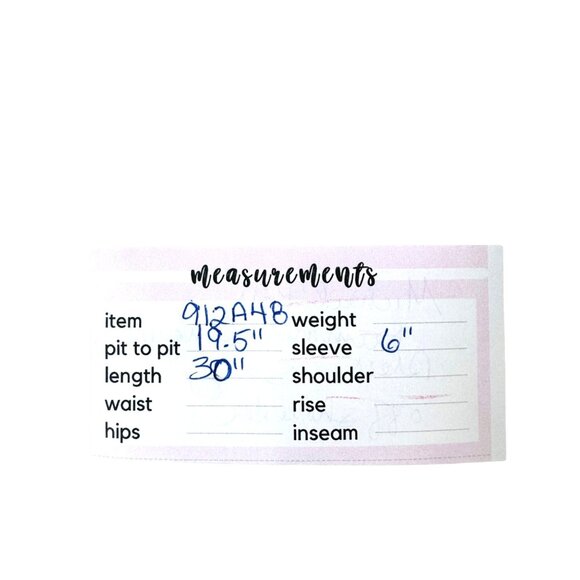 measurements
item 912A4B weight
pit to pit 19.5" sleeve 6"
length 30" shoulder
waist rise
hips inseam